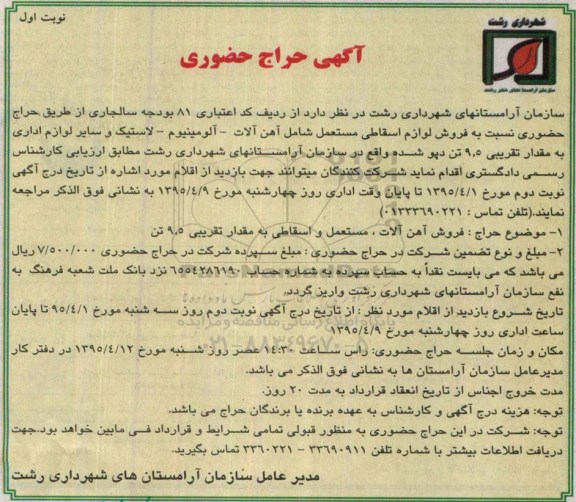 نوبت اول
شهرداری رشت
سازمان آرامستانهای شهر رشت
آگهی حراج حضوری
سازمان آرامستانهای شهرداری رشت در نظر دارد از ردیف کد اعتباری ۸۱ بودجه سالجاری از طریق حراج
حضوری نسبت به فروش لوازم اسقاطی مستعمل شامل آهن آلات - آلومینیوم - لاستیک و سایر لوازم اداری
به مقدار تقریبی ۹,۵ تن دپو شده واقع در سازمان آرامستانهای شهرداری رشت مطابق ارزیابی کارشناس
رسمی دادگستری اقدام نماید شرکت کنندگان میتوانند جهت بازدید از اقلام مورد اشاره از تاریخ درج آگهی
نوبت دوم مورخ ۱۳۹۵/۴/۱ تا پایان وقت اداری روز چهارشنبه مورخ ۱۳۹۵/۴/۹ به نشانی فوق الذکر مراجعه
نمایند.(تلفن تماس : ۰۱۳۳۳۶۹۰۲۲۱)
۱- موضوع حراج : فروش آهن آلات ، مستعمل و اسقاطی به مقدار تقریبی ۹,۵ تن
۲- مبلغ و نوع تضمین شرکت در حراج حضوری : مبلغ سپرده شرکت در حراج حضوری ۷/۵۰۰/۰۰۰ ریال
می باشد که می بایست نقداً به حساب سپرده به شماره حساب ۶۵۵۴۲۸۶۱۹۰ نزد بانک ملت شعبه فرهنگ به
نفع سازمان آرامستانهای شهرداری رشت واریز گردد.
تاریخ شروع بازدید از اقلام مورد نظر : از تاریخ درج آگهی نوبت دوم روز سه شنبه مورخ ۹۵/۴/۱ تا پایان
ساعت اداری روز چهارشنبه مورخ ۱۳۹۵/۴/۹
مکان و زمان جلسه حراج حضوری: راس ساعت ۱۴:۳۰ عصر روز شنبه مورخ ۱۳۹۵/۴/۱۲ در دفتر کار
مدیرعامل سازمان آرامستان ها به نشانی فوق الذکر می باشد.
مدت خروج اجناس از تاریخ انعقاد قرارداد به مدت ۲۰ روز.
توجه: هزینه درج آگهی و کارشناس به عهده برنده یا برندگان حراج می باشد.
توجه: شرکت در این حراج حضوری به منظور قبولی تمامی شرایط و قرارداد فی مابین خواهد بود.جهت
دریافت اطلاعات بیشتر با شماره تلفن ۳۳۶۹۰۹۱۱ - ۳۳۶۰۲۲۱ تماس بگیرید.
مدیر عامل سازمان آرامستان های شهرداری رشت